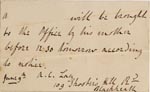 a will be brought
to the Office by his mother
before 10.30 tomorrow according
to notice.
June 9th A. L. Lay
109 Road
Blackheath